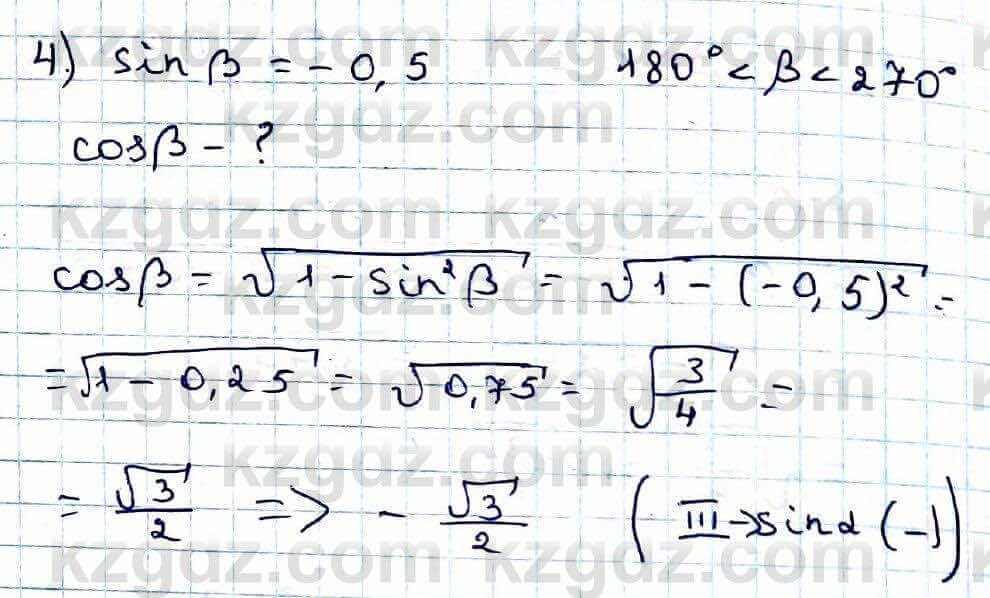 4) sin β = - 0,5 180° < β < 270°
cos β - ?
cos β = √(1 - sin² β) = √(1 - (-0,5)²) =
= √(1 - 0,25) = √(0,75) = √(3/4) =
= √3/2 => - √3/2 (III → sin α (-))
kzgdz.com kzgdz.com
kzgdz.com
kzgdz.com kzgdz.com
kzgdz.com
kzgdz.com kzgdz.com
kzgdz.com
kzgdz.com kzgdz.com